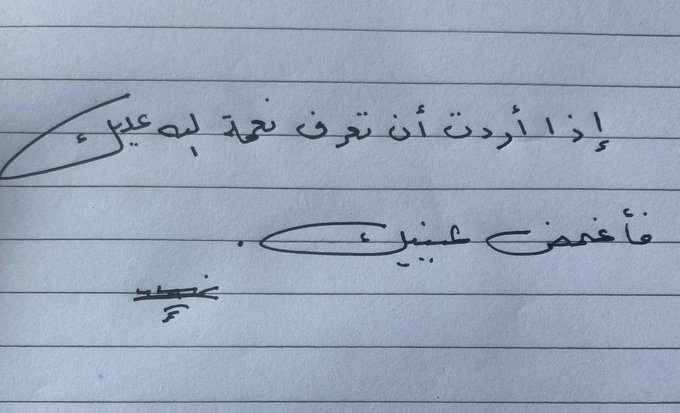 إذا أردت أن تعرف نعمة الله عليك
فأغمض عينيك .